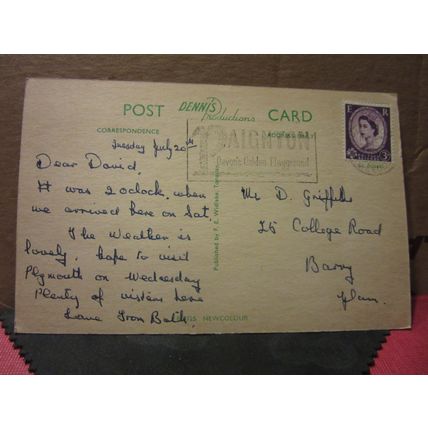 POST DENNIS Productions CARD
CORRESPONDENCE
ADDRESS ONLY
Tuesday July 20th
Dear David,
It was 2 oclock when
we arrived here on Sat.
The Weather is
lovely. hope to visit
Plymouth on Wednesday
Plenty of visitors here
Love from Both.
PAIGNTON
Devon's Golden Playground
E R
POSTAGE
3D
Mr D. Griffiths
25 College Road
Barry
Glam.
Published by F. E. Widlake,
DENNIS NEWCOLOUR